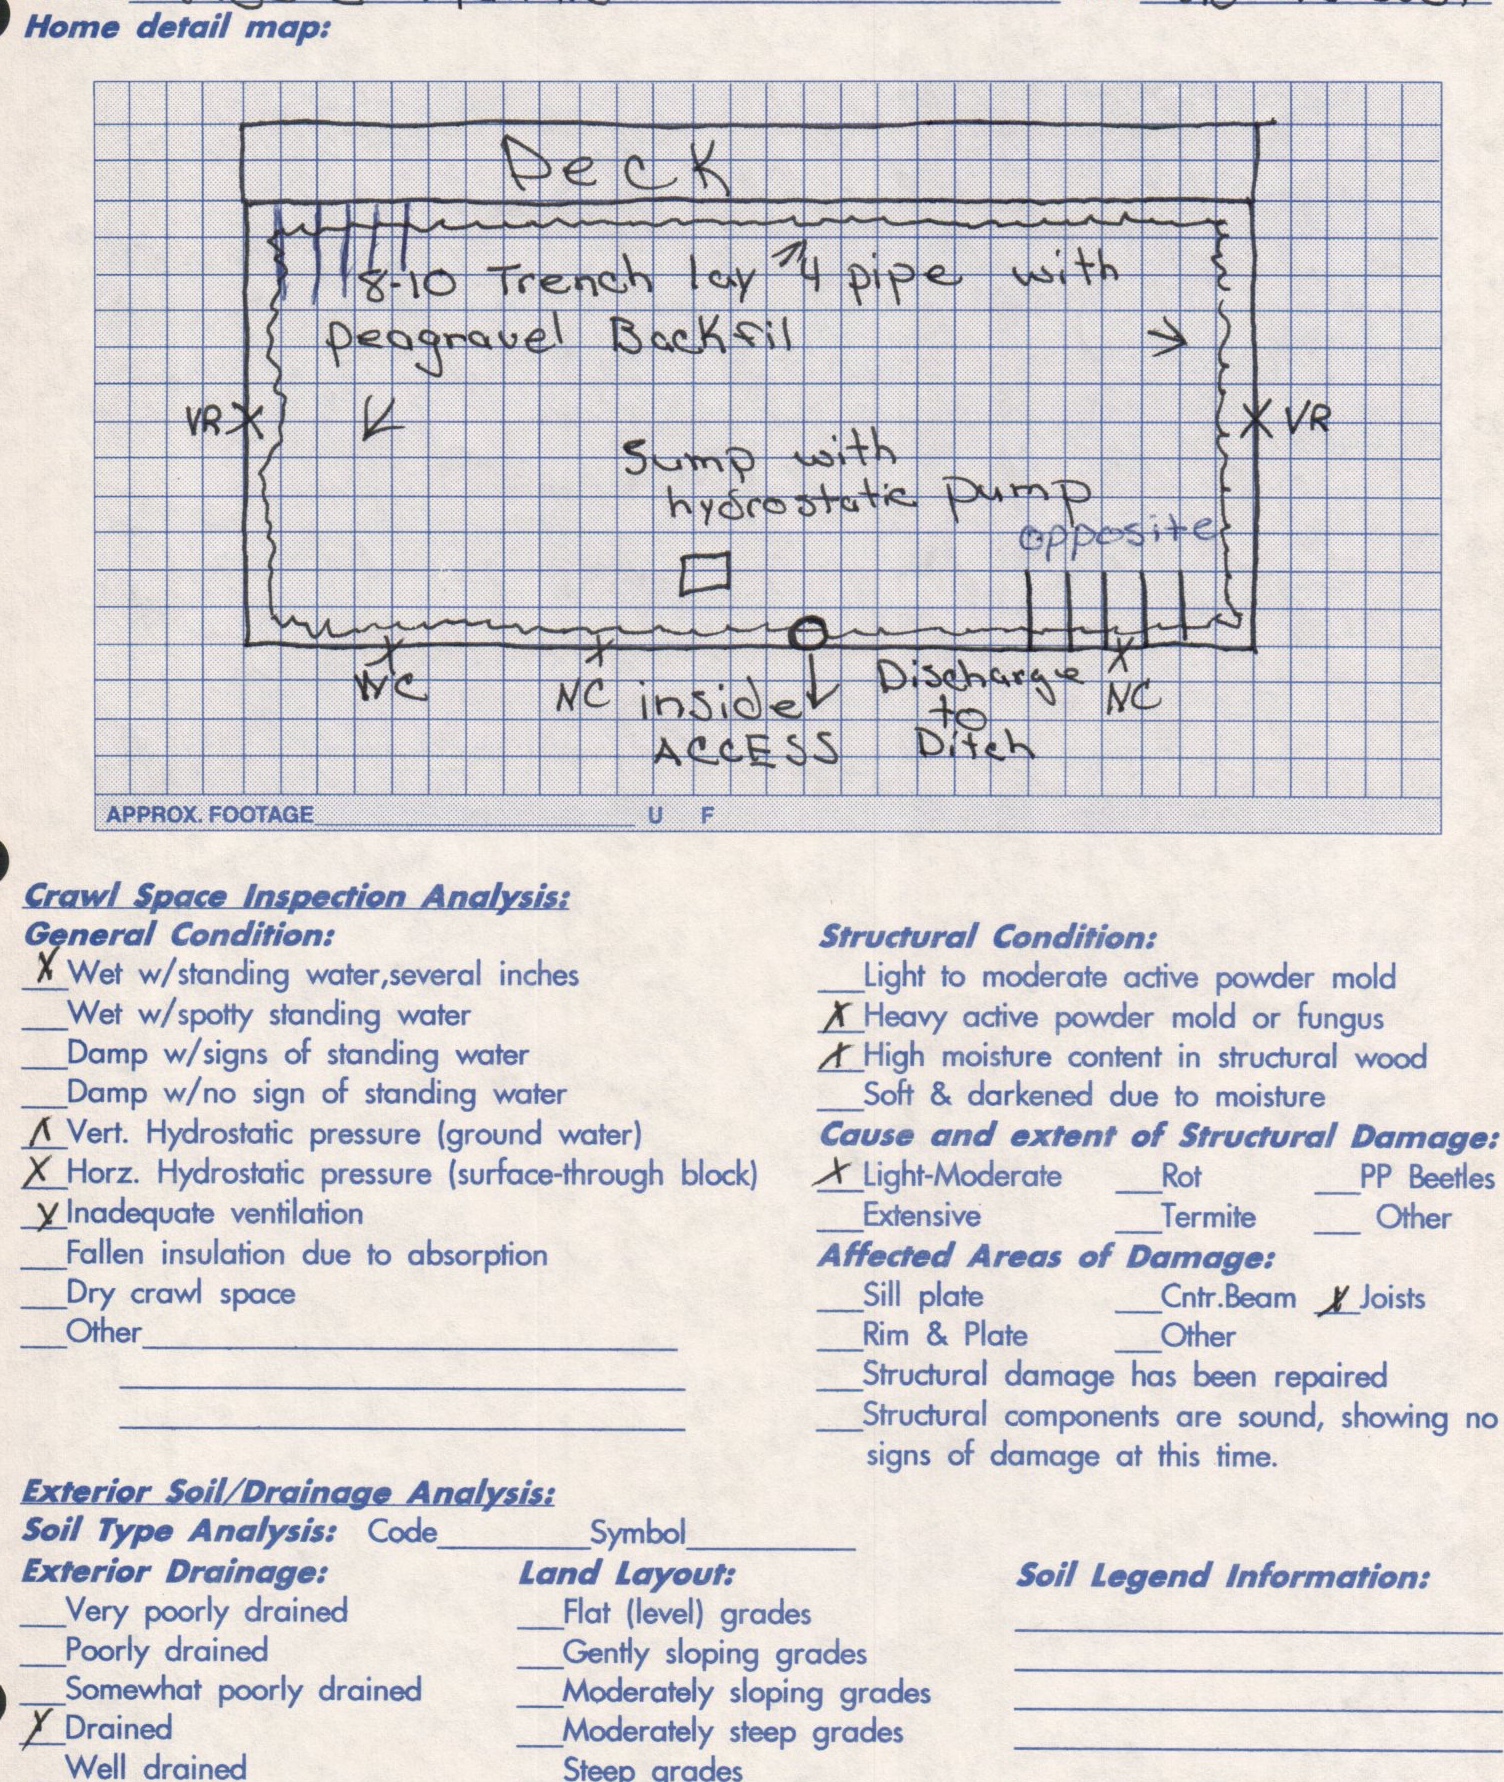 Home detail map:
Deck
8-10 Trench lay "4 pipe with
peagravel Backfil
VR
VR
Sump with
hydrostatic pump
opposite
NC
NC
inside
ACCESS
Discharge
to
Ditch
NC
APPROX. FOOTAGE U F
Crawl Space Inspection Analysis:
General Condition:
X Wet w/standing water,several inches
Wet w/spotty standing water
Damp w/signs of standing water
Damp w/no sign of standing water
X Vert. Hydrostatic pressure (ground water)
X Horz. Hydrostatic pressure (surface-through block)
X Inadequate ventilation
Fallen insulation due to absorption
Dry crawl space
Other
Structural Condition:
Light to moderate active powder mold
X Heavy active powder mold or fungus
X High moisture content in structural wood
Soft & darkened due to moisture
Cause and extent of Structural Damage:
X Light-Moderate Rot PP Beetles
Extensive Termite Other
Affected Areas of Damage:
Sill plate Cntr.Beam X Joists
Rim & Plate Other
Structural damage has been repaired
Structural components are sound, showing no
signs of damage at this time.
Exterior Soil/Drainage Analysis:
Soil Type Analysis: Code Symbol
Exterior Drainage:
Very poorly drained
Poorly drained
Somewhat poorly drained
X Drained
Well drained
Land Layout:
Flat (level) grades
Gently sloping grades
Moderately sloping grades
Moderately steep grades
Steep grades
Soil Legend Information: